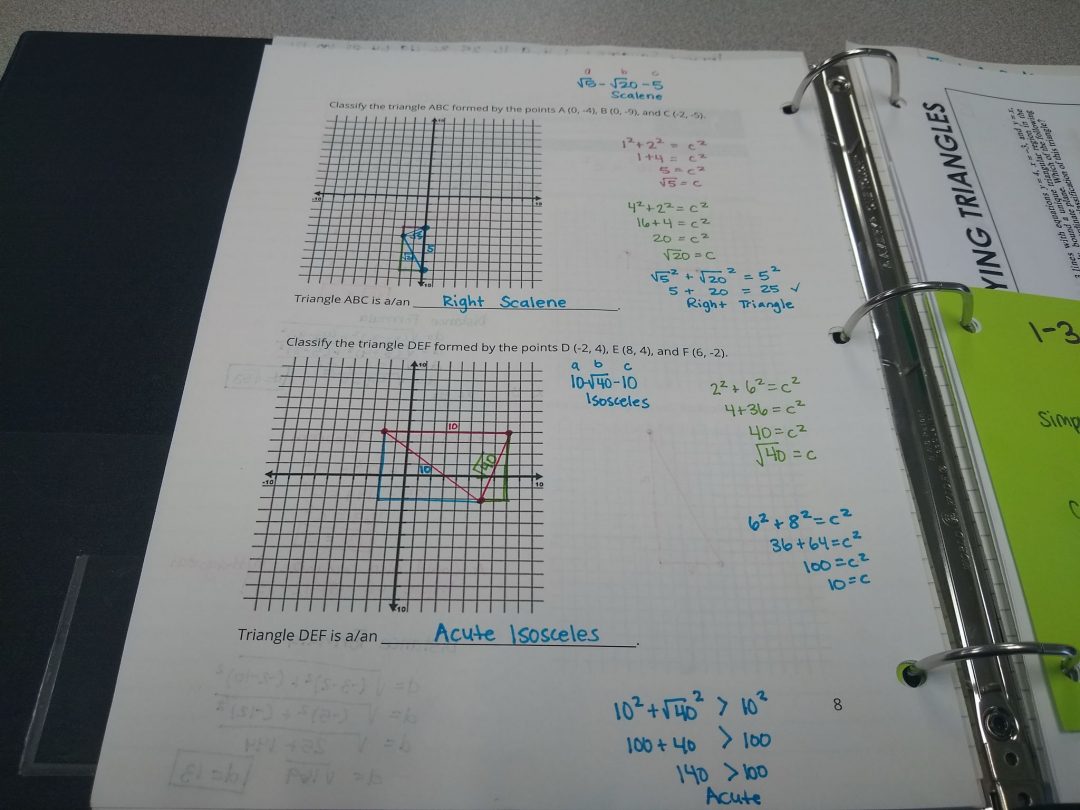 a b c
√5-√20-5
Scalene
Classify the triangle ABC formed by the points A (0, -4), B (0, -9), and C (-2, -5).
1²+2² = c²
1+4 = c²
5 = c²
√5 = c
4²+2² = c²
16+4 = c²
20 = c²
√20 = c
√5² + √20² = 5²
5 + 20 = 25 ✓
Right Triangle
-10
10
10
-10
√5
5
√20
Triangle ABC is a/an Right Scalene.
Classify the triangle DEF formed by the points D (-2, 4), E (8, 4), and F (6, -2).
a b c
10-√40-10
Isosceles
2²+6²=c²
4+36=c²
40=c²
√40=c
10
10
10
√40
-10
10
-10
6²+8²=c²
36+64=c²
100=c²
10=c
Triangle DEF is a/an Acute Isosceles.
10²+√40² > 10²
100+40 > 100
140 >100
Acute
8
YING TRIANGLES
1-3
Simp